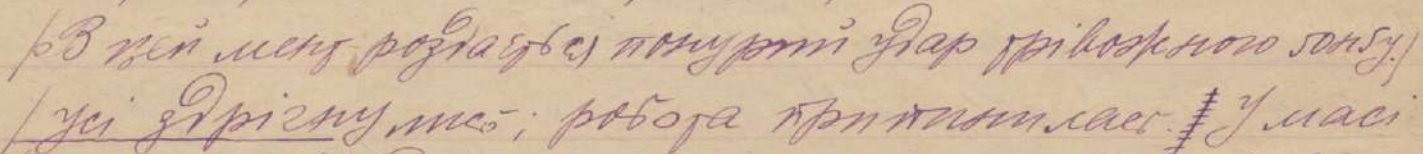 (В цей мент роздається понурий удар трівожного гонгу.)
(Усі здрігнулись; робота припинилась. У масі